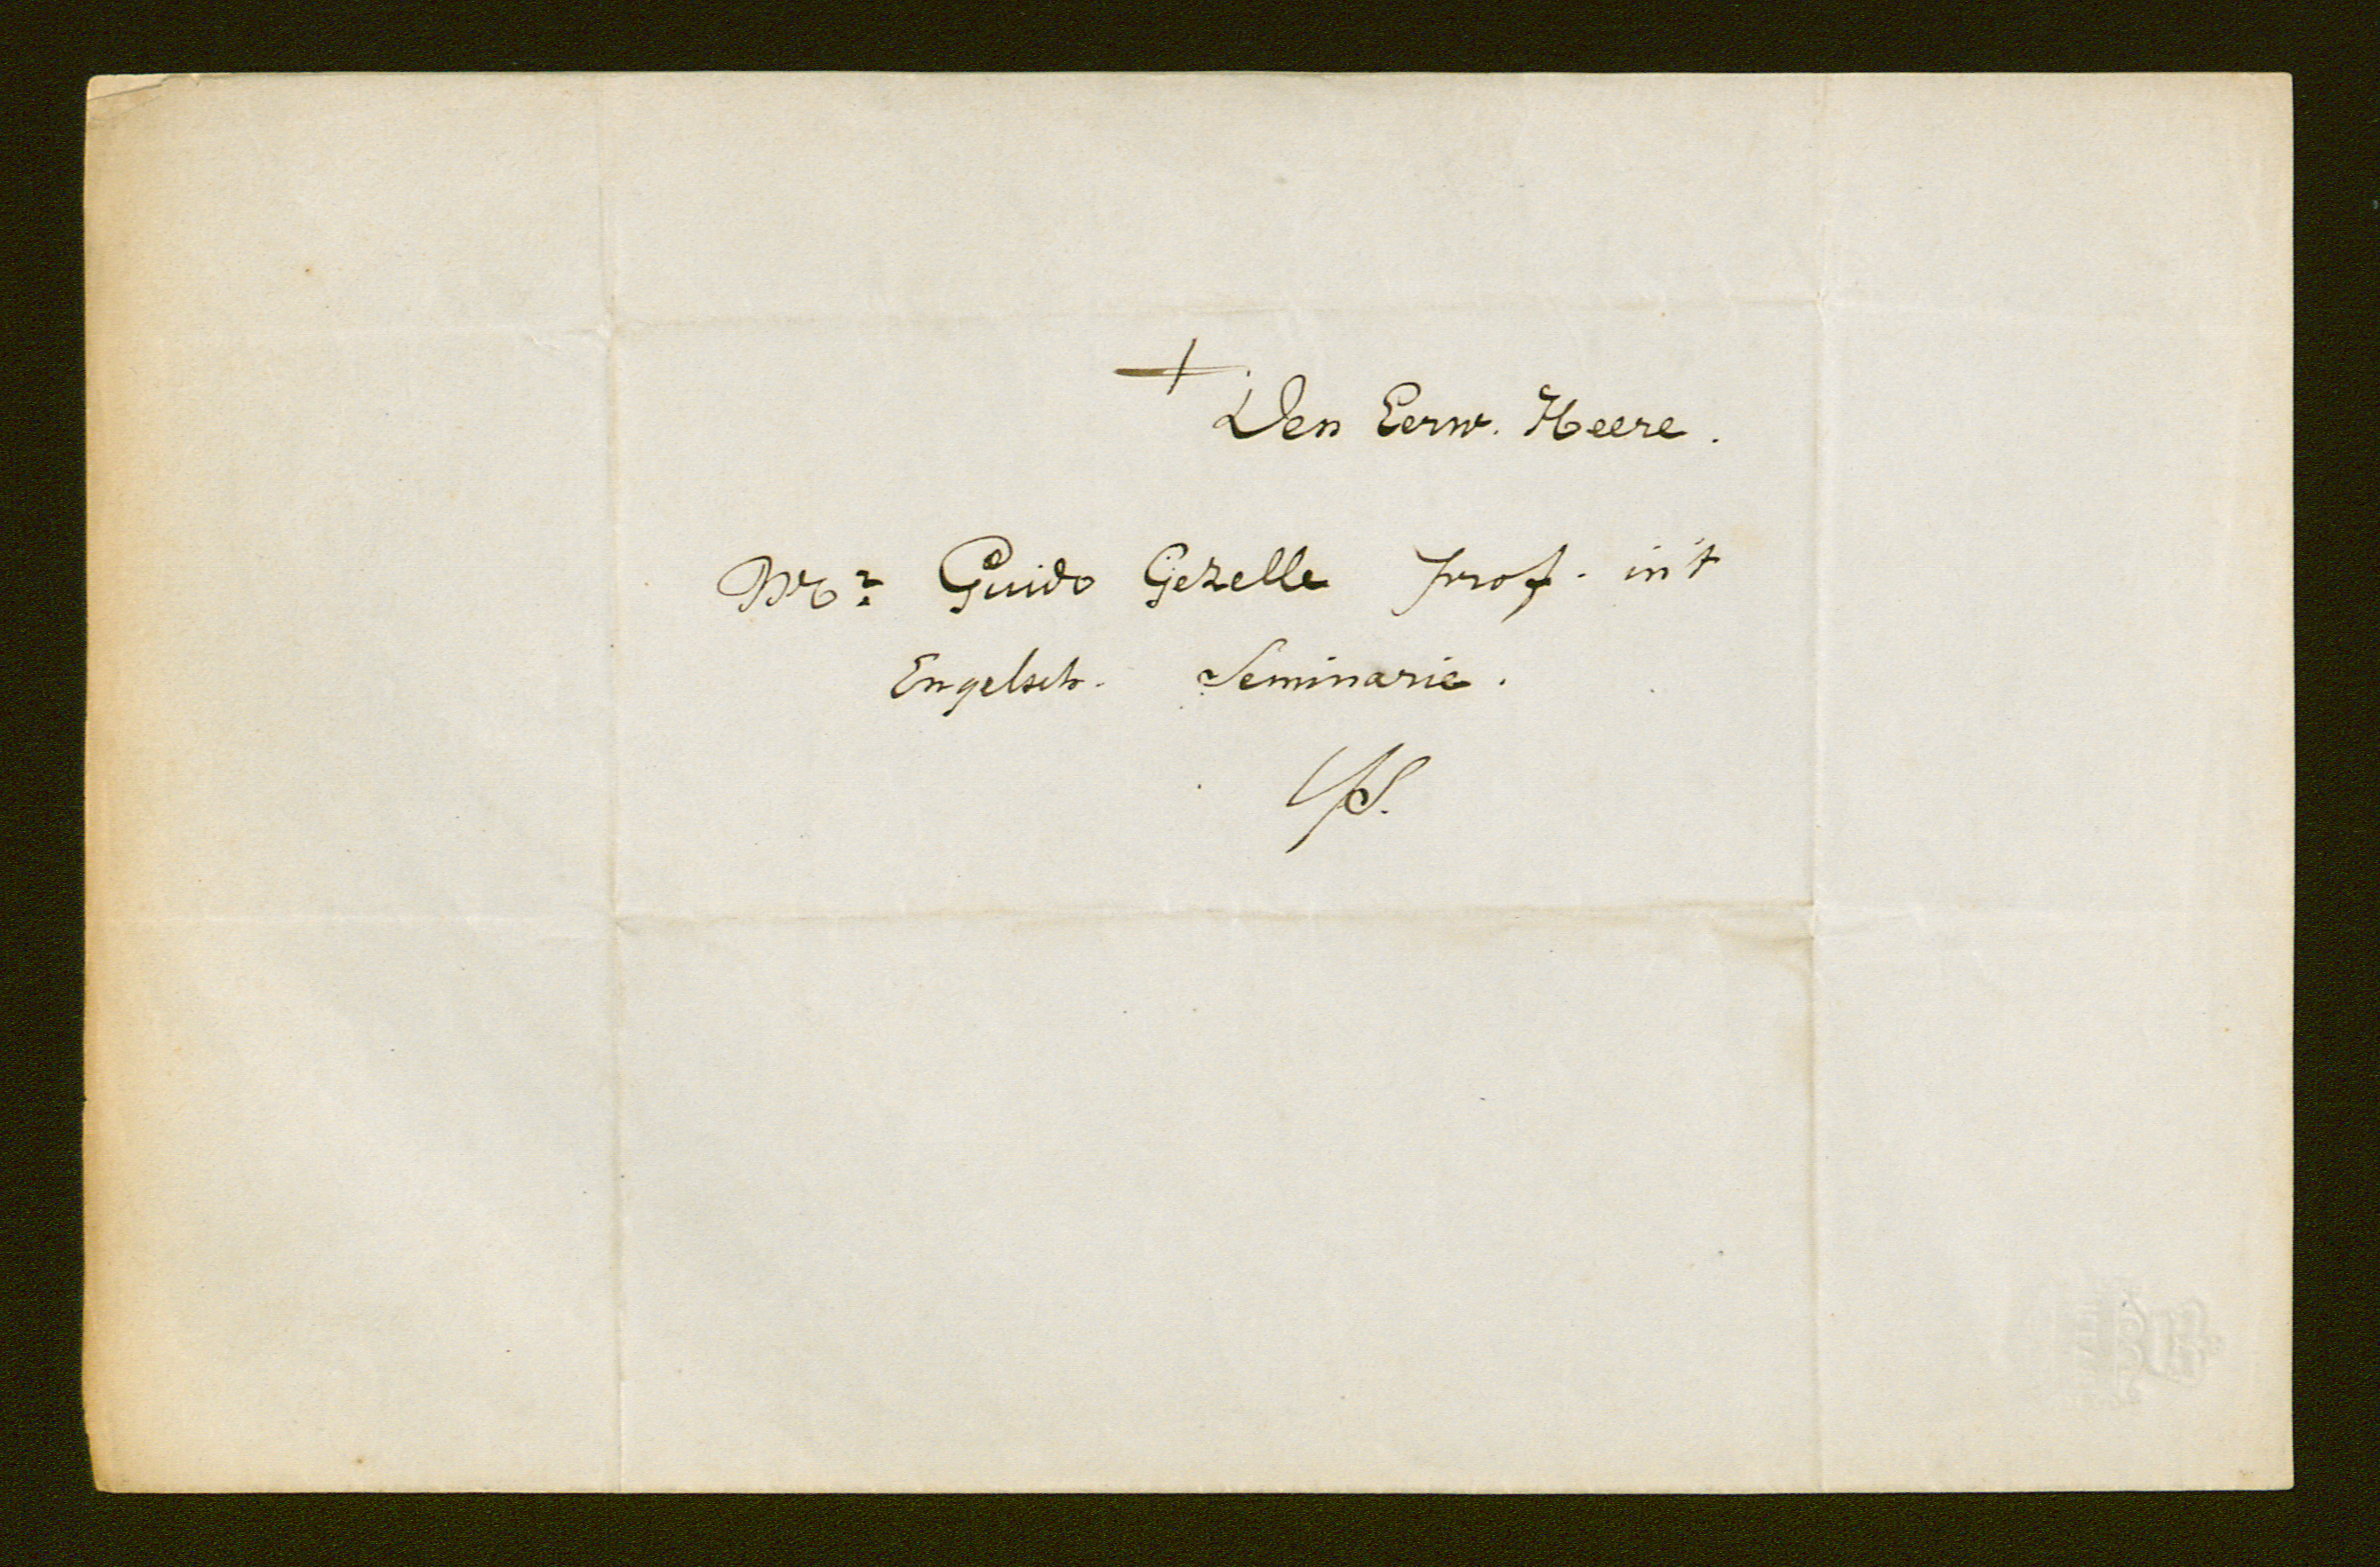 +
Den Eerw. Heere.
Mr. Guido Gezelle prof. in't
Engelsch. Seminarie.